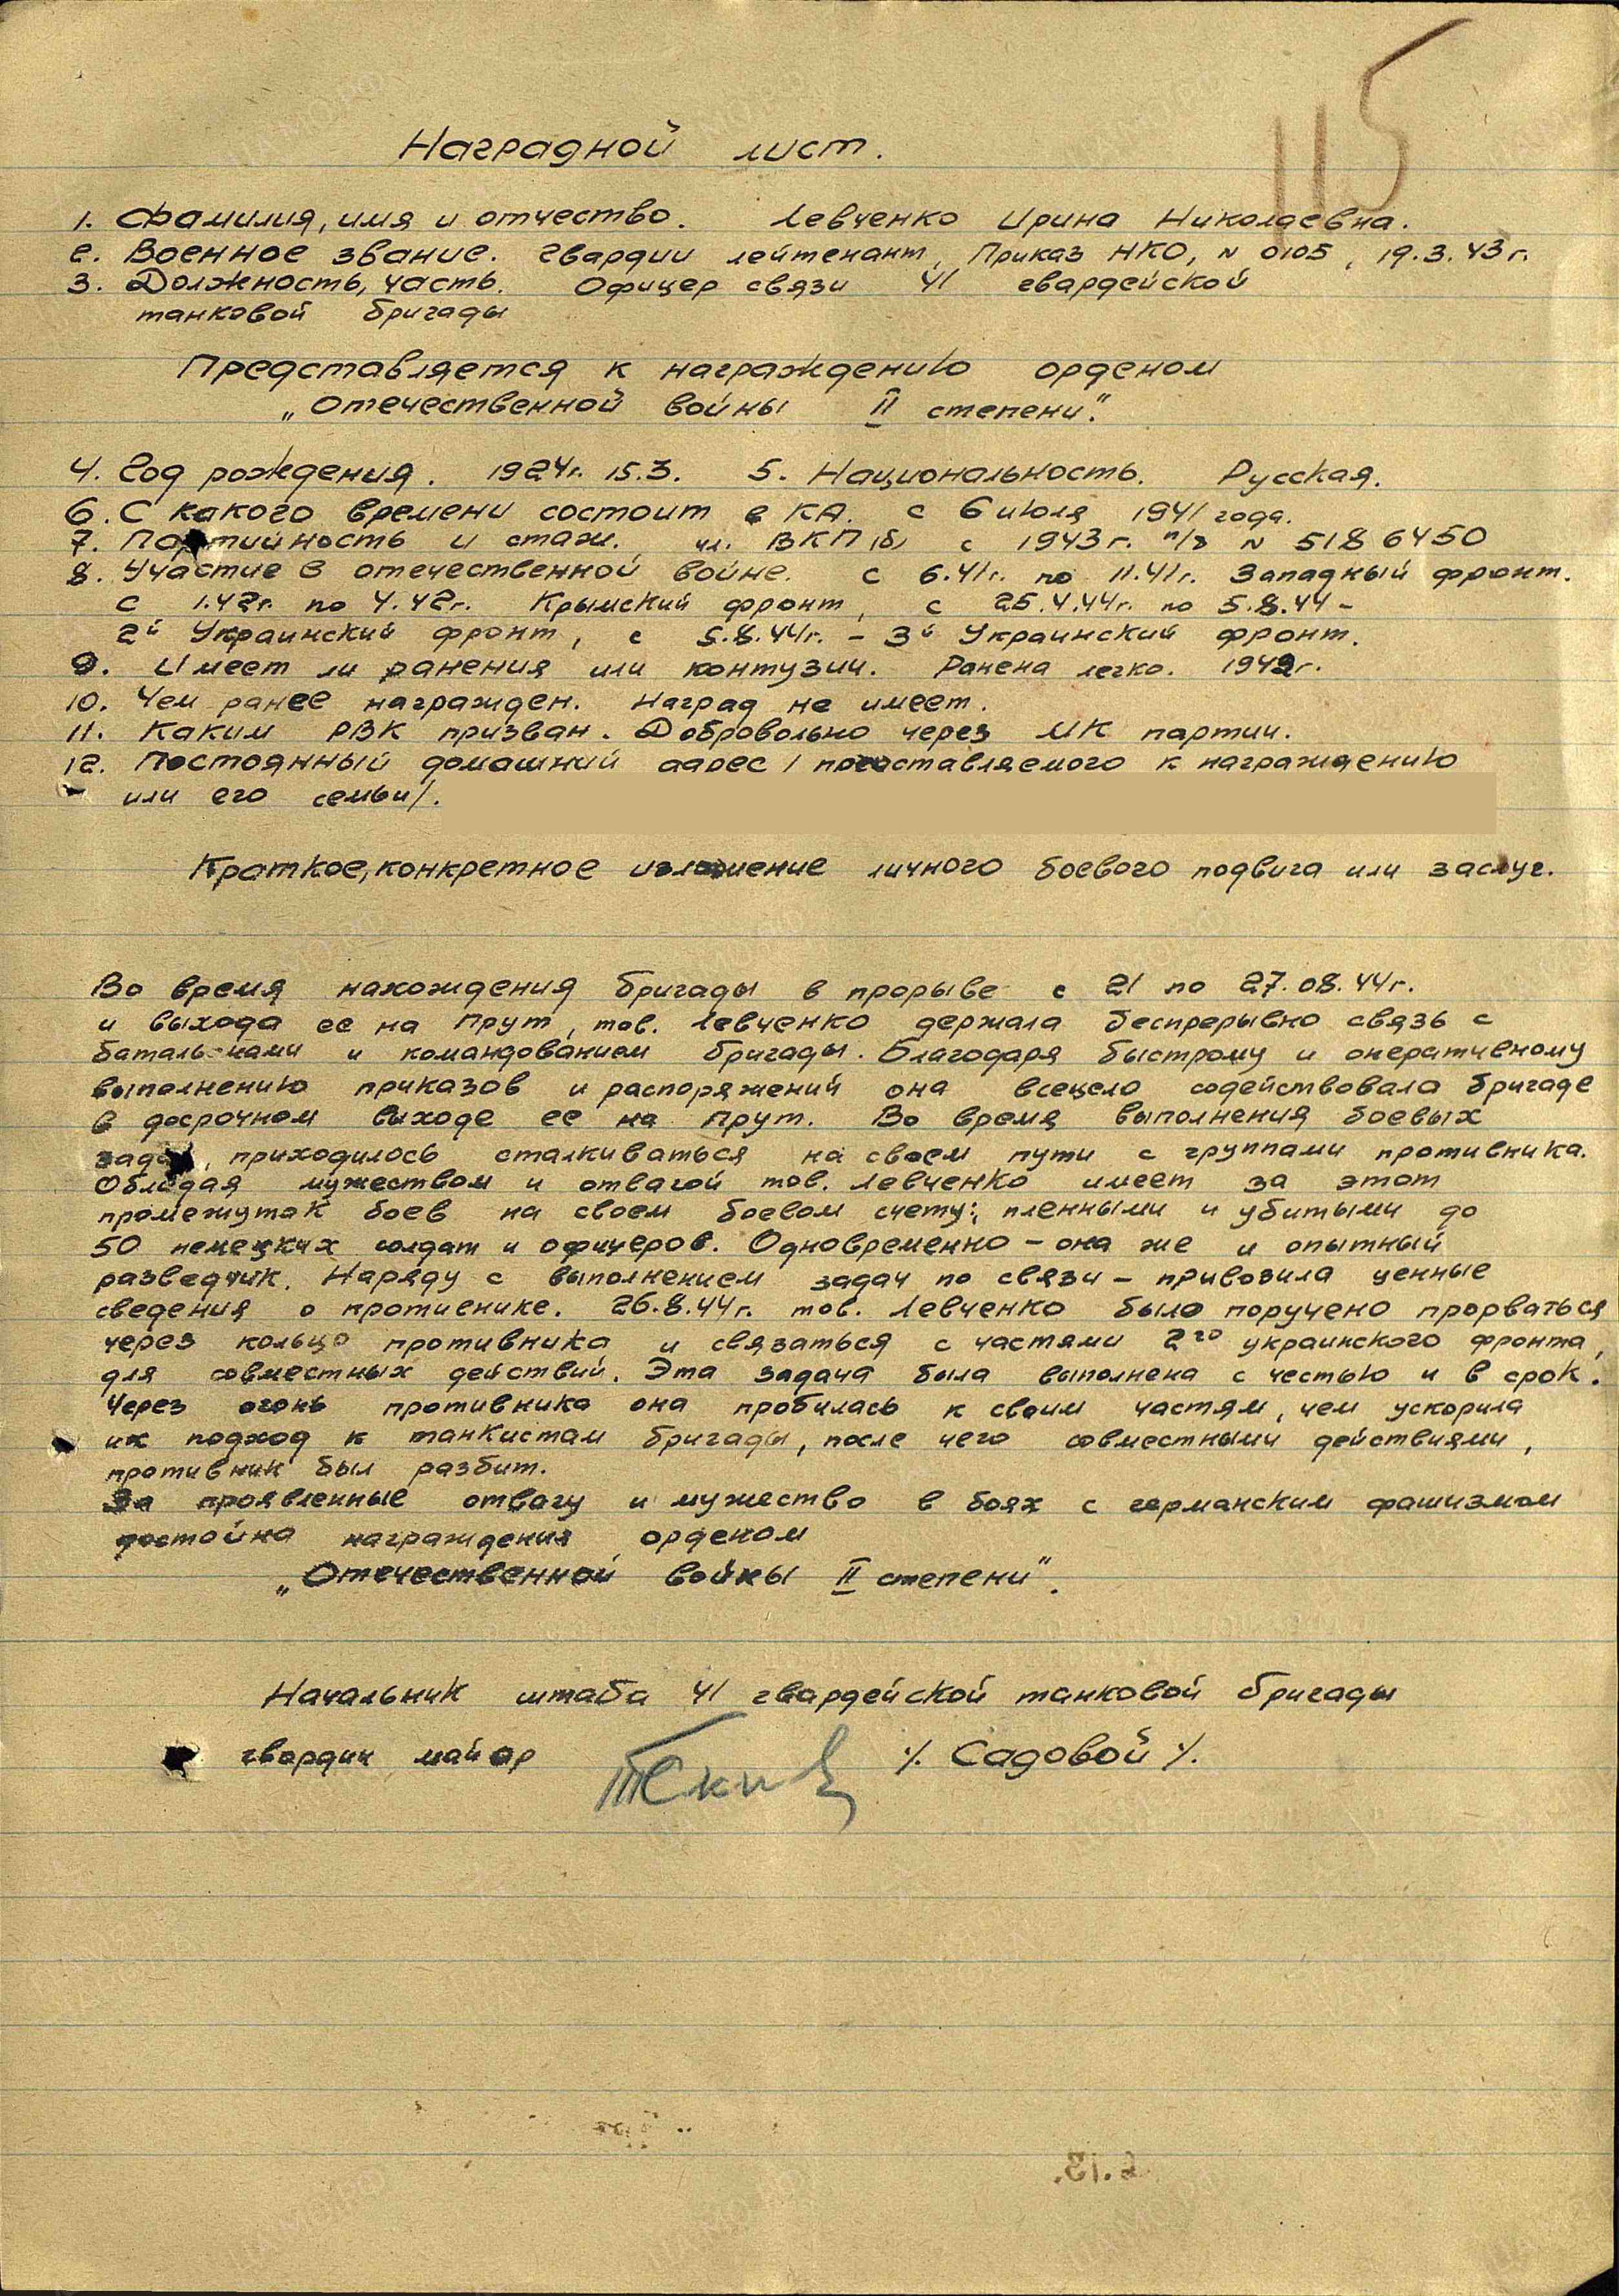 115
Наградной лист.
1. Фамилия, имя и отчество. Левченко Ирина Николаевна.
2. Военное звание. Гвардии лейтенант, Приказ НКО, N 0105, 19.3.43 г.
3. Должность, часть. Офицер связи 41 гвардейской
танковой бригады
Представляется к награждению орденом
„Отечественной войны II степени".
4. Год рождения. 1924г. 15.3. 5. Национальность. Русская.
6. С какого времени состоит в КА. с 6 июля 1941 года.
7. Партийность и стаж. чл. ВКП(б) с 1943 г. п/б N 5186450
8. Участие в отечественной войне. с 6.41г. по 11.41г. Западный фронт.
с 1.42г. по 4.42г. Крымский фронт, с 25.4.44г. по 5.8.44 -
2й Украинский фронт, с 5.8.44г. - 3й Украинский фронт.
9. Имеет ли ранения или контузии. Ранена легко. 1942г.
10. Чем ранее награжден. Наград не имеет.
11. Каким РВК призван. Добровольно через МК партии.
12. Постоянный домашний адрес / представляемого к награждению
или его семьи/.
Краткое, конкретное изложение личного боевого подвига или заслуг.
Во время нахождения бригады в прорыве с 21 по 27.08.44г.
и выхода ее на Прут, тов. Левченко держала беспрерывно связь с
батальонами и командованием бригады. Благодаря быстрому и оперативному
выполнению приказов и распоряжений она всецело содействовала бригаде
в досрочном выходе ее на Прут. Во время выполнения боевых
задач, приходилось сталкиваться на своем пути с группами противника.
Обладая мужеством и отвагой тов. Левченко имеет за этот
промежуток боев на своем боевом счету:, пленными и убитыми до
50 немецких солдат и офицеров. Одновременно - она же и опытный
разведчик. Наряду с выполнением задач по связи - привозила ценные
сведения о противнике. 26.8.44г. тов. Левченко было поручено прорваться
через кольцо противника и связаться с частями 2го украинского фронта,
для совместных действий. Эта задача была выполнена с честью и в срок.
Через огонь противника она пробилась к своим частям, чем ускорила
их подход к танкистам бригады, после чего совместными действиями,
противник был разбит.
За проявленные отвагу и мужество в боях с германским фашизмом
достойна награждения орденом
„Отечественной войны II степени".
Начальник штаба 41 гвардейской танковой бригады
гвардии майор /. Садовой /.